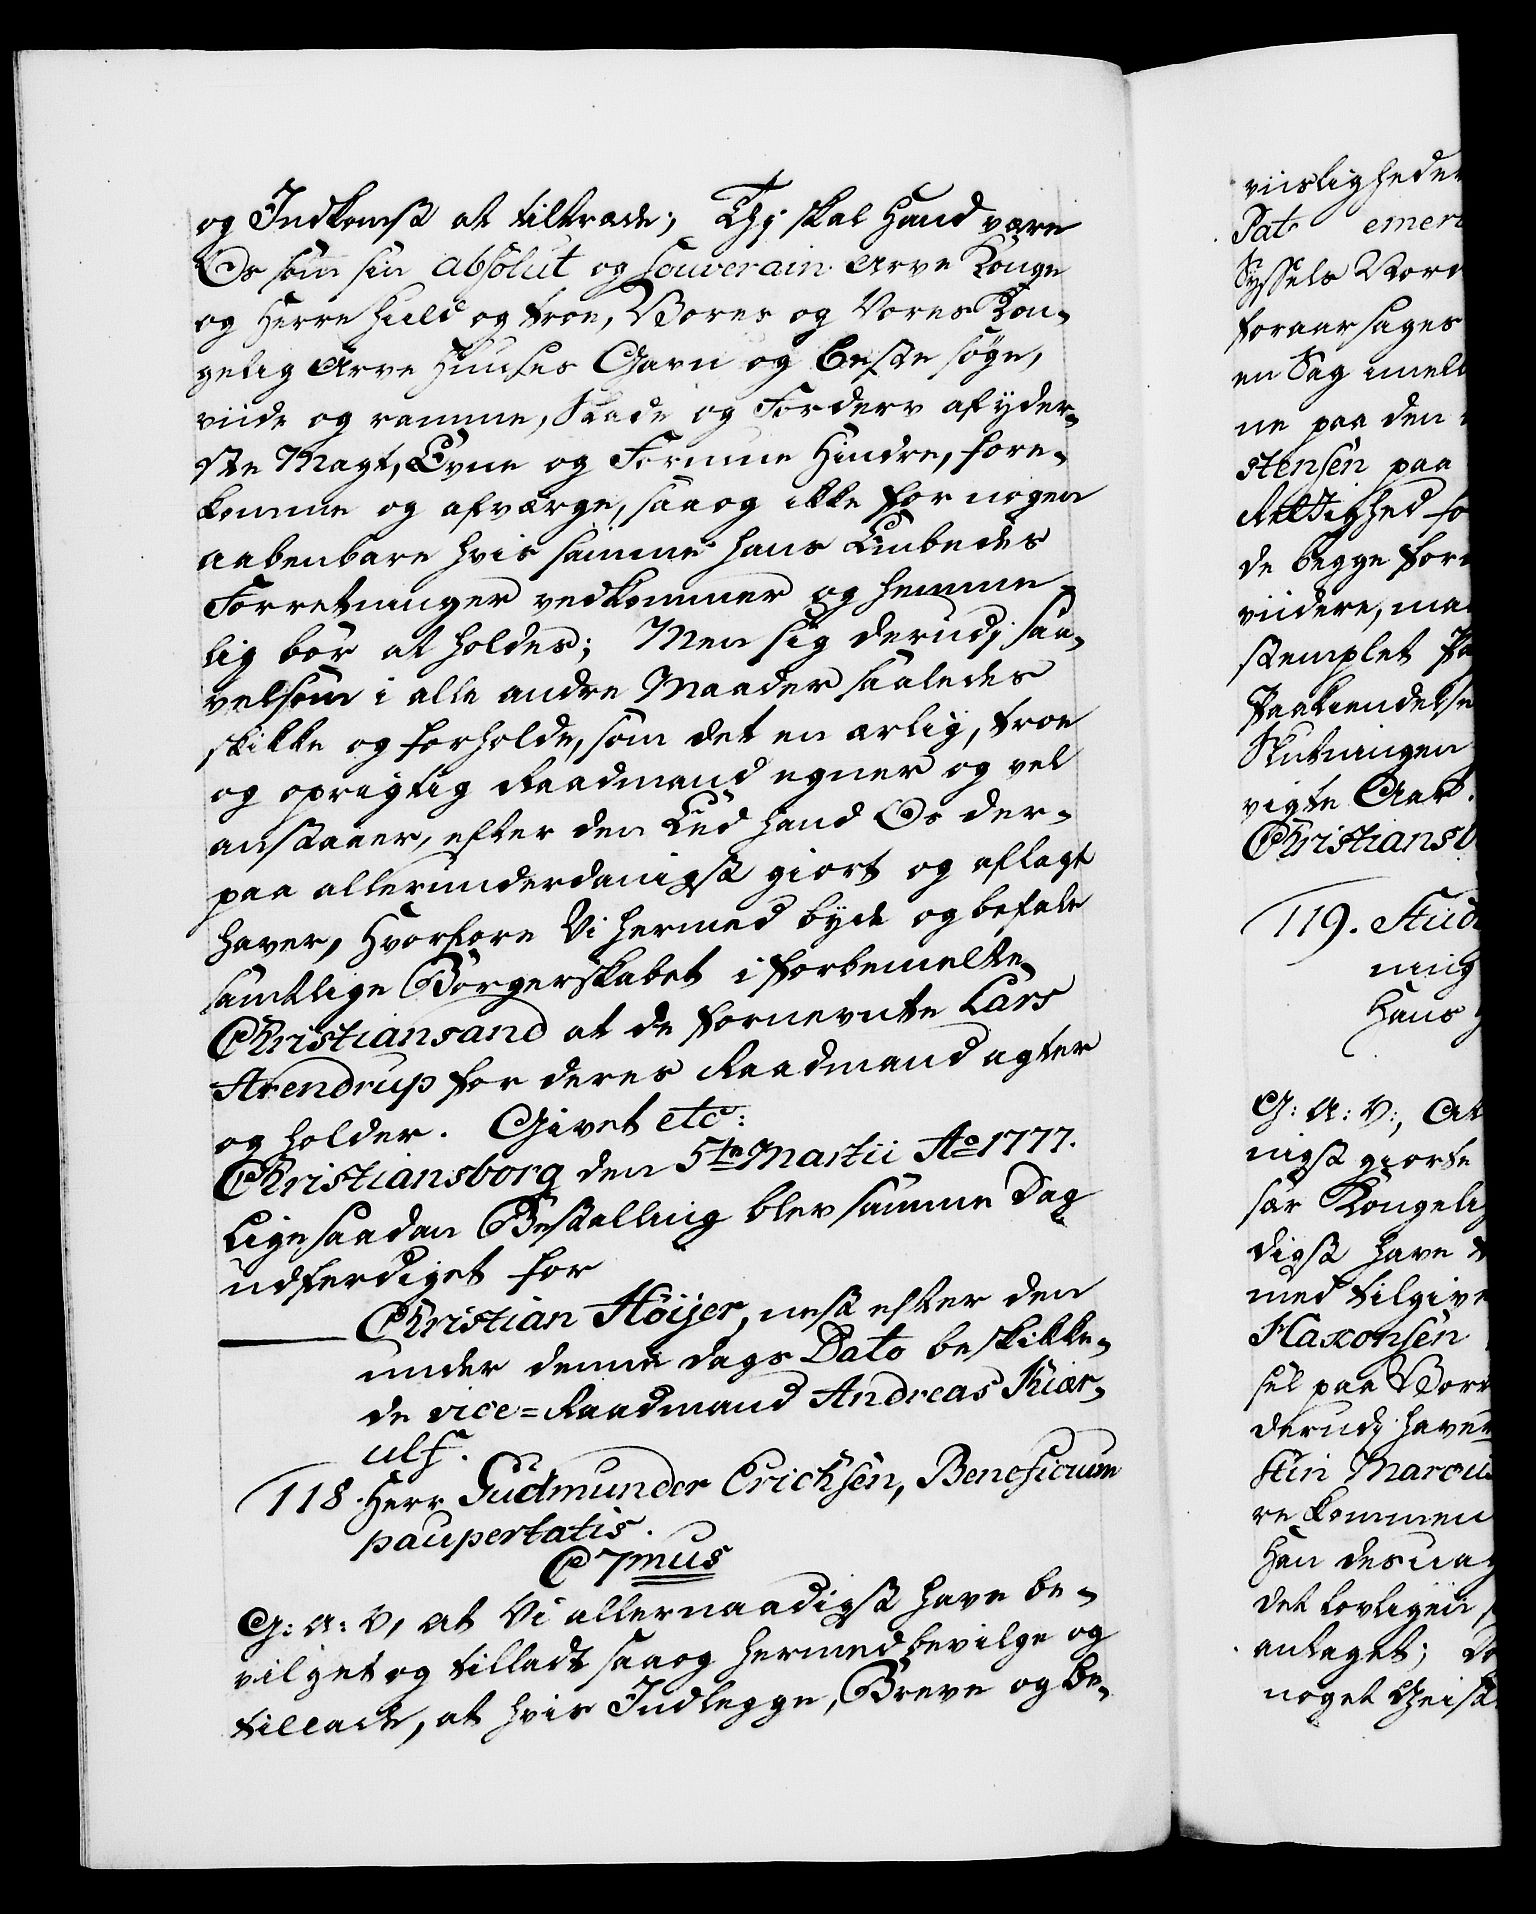 og Indkomst at tiltræde; Thj skal Hand være
Os som sin absolut og souverain Arve Konge
og Herre huld og troe, Vores og Vores Kon-
gelig Arve Huuses Gavn og Beste søge,
viide og ramme, Skade og Forderv af yder-
ste Magt, Evne og Formue Hindre, fore-
komme og afværge, saa og ikke for nogen
aabenbare hvis samme hans Embedes
Forretninger vedkommer og hemme-
lig bør at holdes; Men sig derudj saa-
velsom i alle andre Maader saaledes
skikke og forholde, som det en ærlig, troe
og oprigtig Raadmand egner og vel
anstaaer, efter den Eed Hand Os der-
paa allerunderdanigst giort og aflagt
haver, Hvorfore Vi hermed byde og befale
samtlige Borgerskabet i forbemelte
Christiansand at de fornevnte Lars
Arendrup for deres Raadmand agter
og holder. Givet etc:
Christiansborg den 5te Martii Ao 1777.
Lige saadan Bestalling blev samme Dag
udferdiget for
Christian Höijer, nest efter den
under denne dags Dato beskikke-
de vice=Raadmand Andreas Kiær-
ulf.
118. Herr Gudmunder Erichsen, Beneficium
paupertatis.
C 7mus
G: A: V, at Vi allernaadigst have be-
vilget og tilladt saa og hermed bevilge og
tillade, at hvis Indlegge, Breve og be-
viisligheder
Pat emeri
Syssels Nord
foraarsages
en Sag imell
ne paa den
stensen paa
Rettighed fo
de begge for
viidere, ma
stemplet Pa
Paakiendelse
Slutningen
vigte Aar.
Christiansb
119. Stud
ning
Hans
G: A: V:, At
nigst giorte
sær Kongelig
digst have
med tilgive
Haxonsen
sel paa Vor
derudj haver
stin Marcus
re kommen
Han desuag
det lovligen
antaget; Do
noget Geist